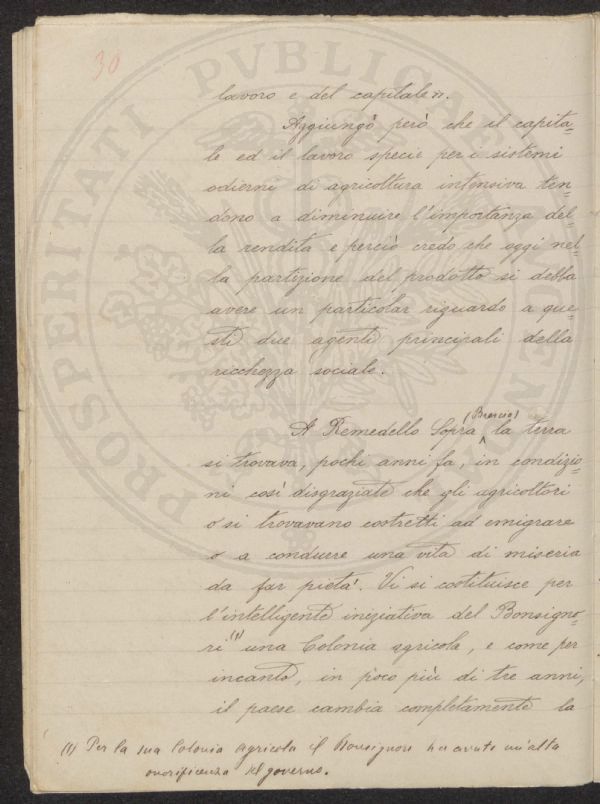 30
lavoro e del capitale».
Aggiungo però che il capita=
le ed il lavoro specie per i sistemi
odierni di agricoltura intensiva ten=
dono a diminuire l'importanza del=
la rendita e perciò credo che oggi nel=
la partizione del prodotto si debba
avere un particolar riguardo a que=
sti due agenti principali della
ricchezza sociale.
A Remedello Sopra (Brescia) la terra
si trovava, pochi anni fa, in condizio=
ni così disgraziate che gli agricoltori
o si trovavano costretti ad emigrare
o a condurre una vita di miseria
da far pietà. Vi si costituisce per
l'intelligente iniziativa del Bonsigno=
ri (1) una Colonia agricola, e come per
incanto, in poco più di tre anni,
il paese cambia completamente la
(1) Per la sua Colonia agricola il Bonsignori ha avuto un'alta
onorificenza del governo.
PROSPERITATI PVBLICAE